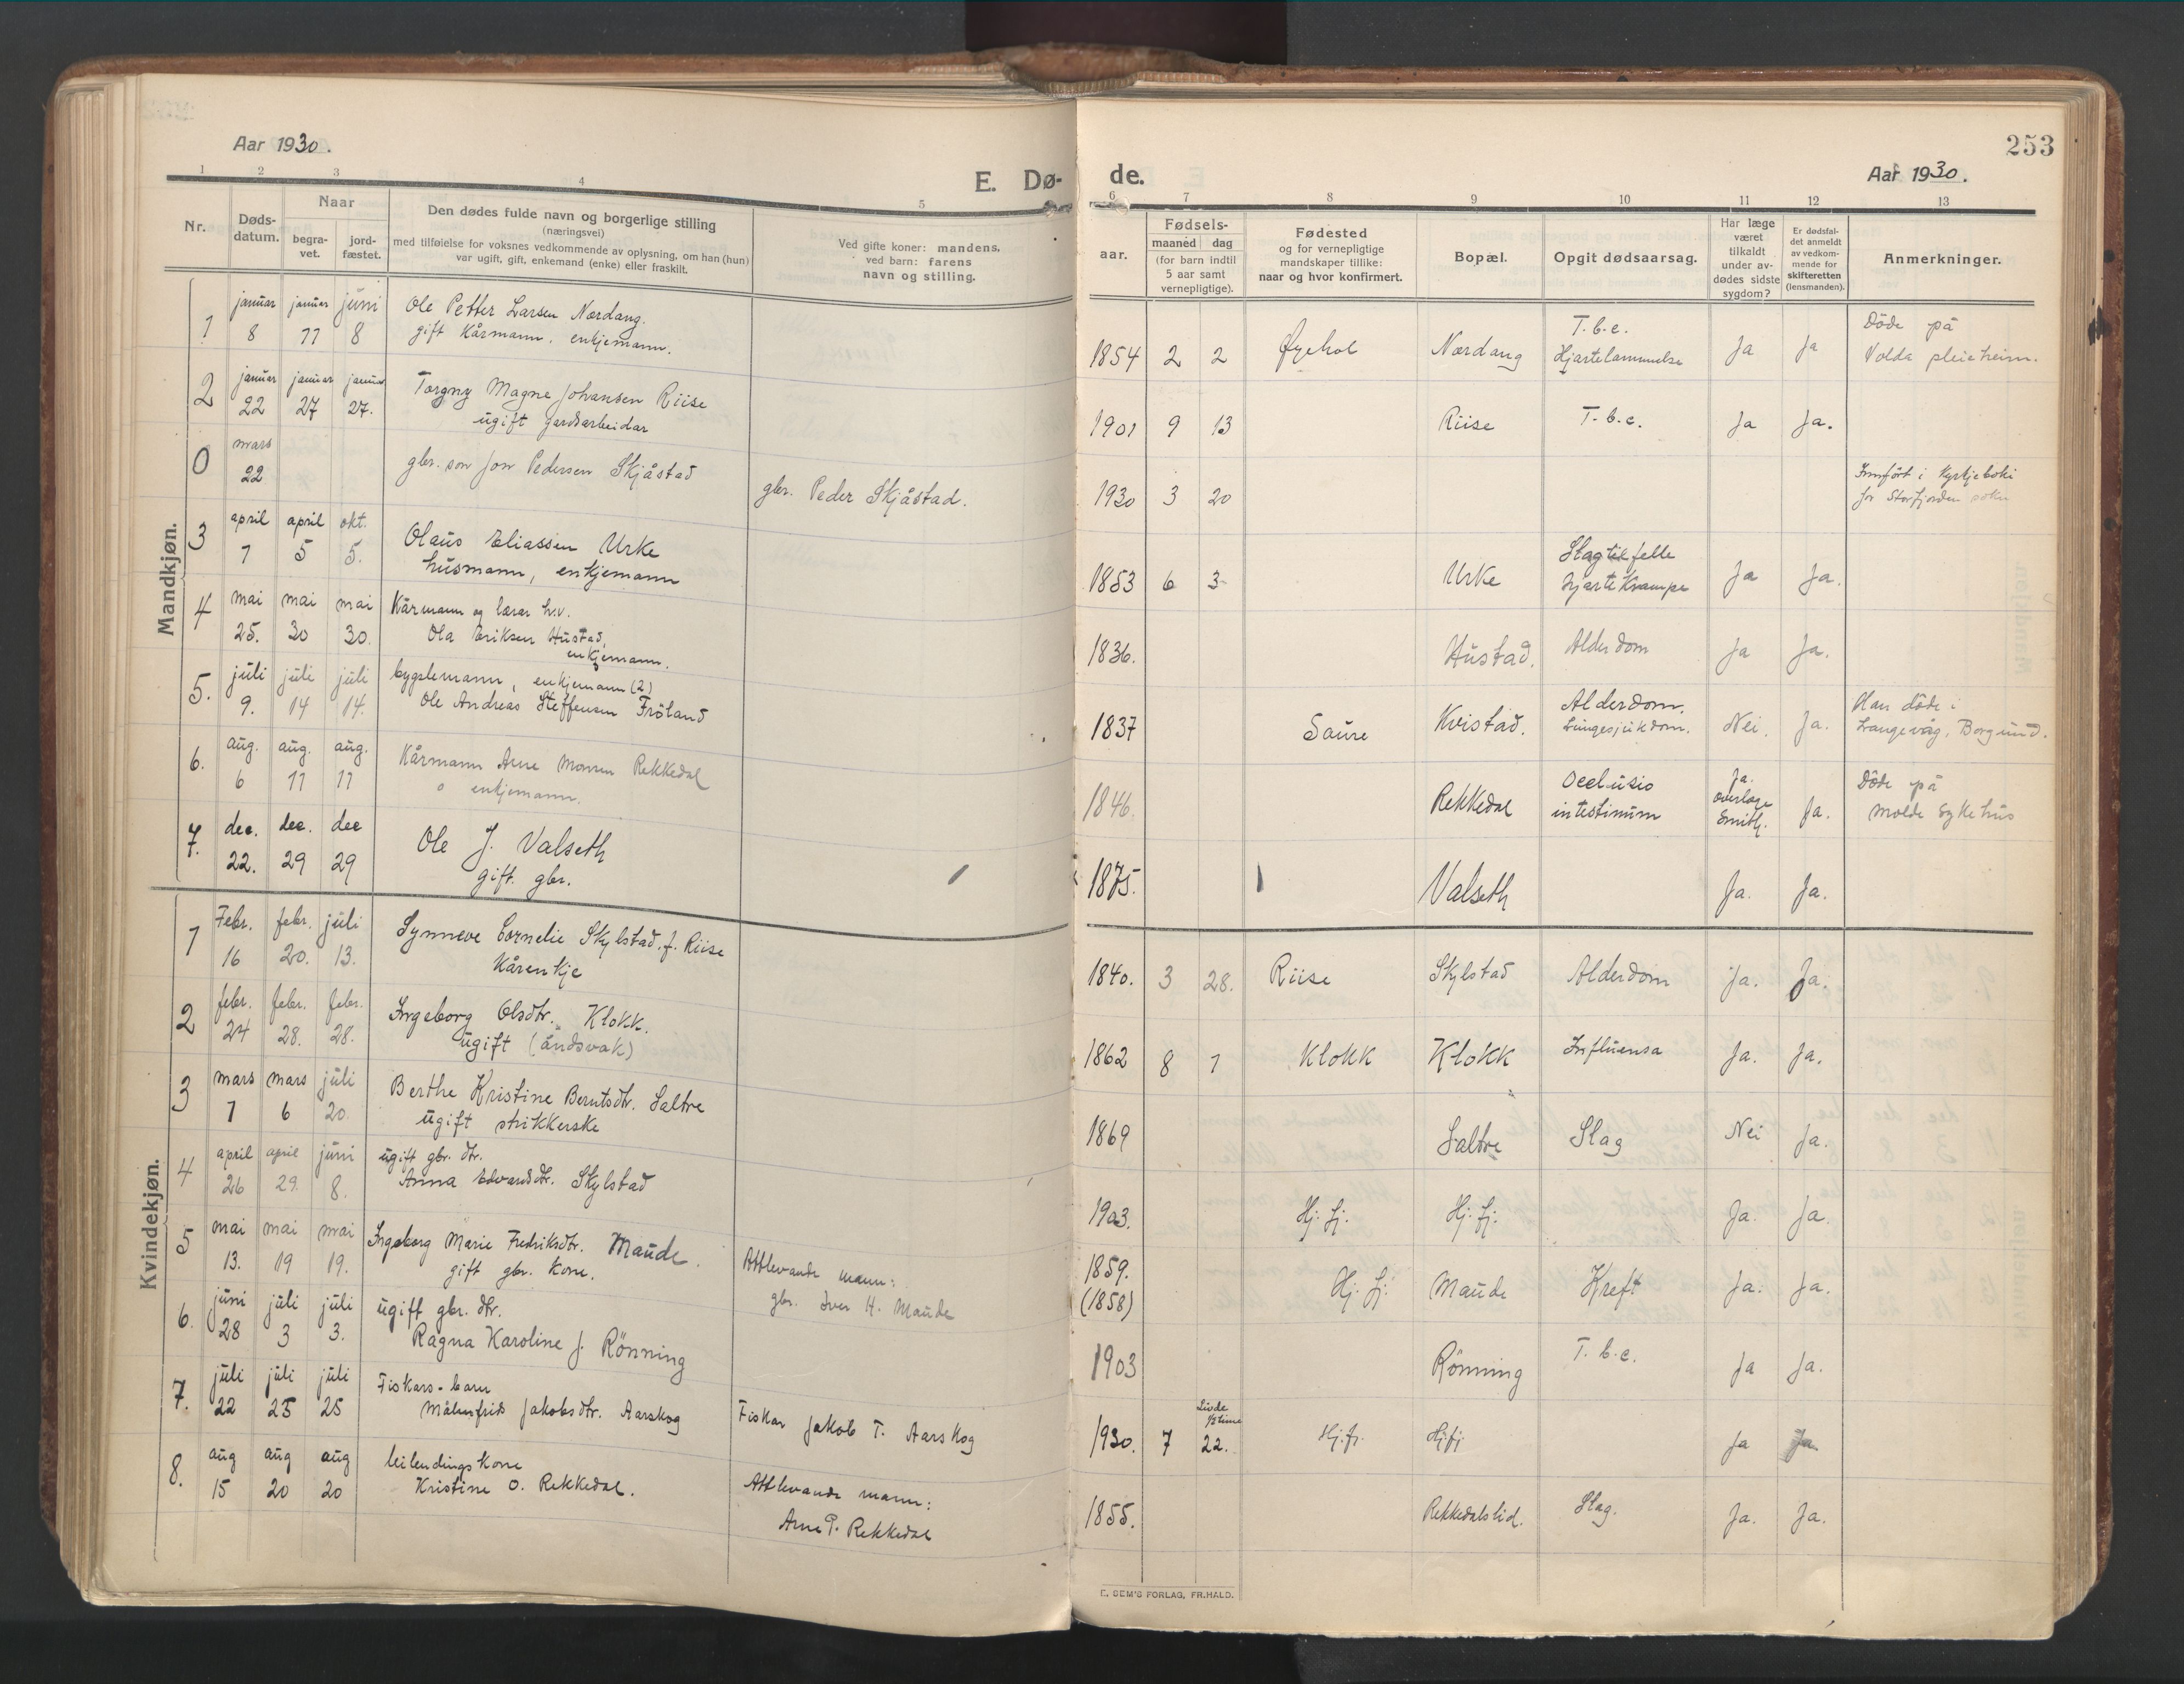 Aar 1930.
E. Dø-
1 2 3 4 5
Nr.
Døds-
datum.
Naar
begra-
vet.
jord-
fæstet.
Den dødes fulde navn og borgerlige stilling
(næringsvei)
med tilføielse for voksnes vedkommende av oplysning, om han (hun)
var ugift, gift, enkemand (enke) eller fraskilt.
Ved gifte koner: mandens,
ved barn: farens
navn og stilling.
Mandkjøn.
januar januar juni Ole Petter Larsen Nordang.
1 8 11 8 gift Kårmann, enkjemann.
januar januar januar Torgny Magne Johansen Riise
2 22 27 27. ugift gardsarbeidar
mars
0 22 gbr. son Jon Pedersen Skjåstad gbr. Peder Skjåstad.
april april okt. Olaus Eliassen Urke
3 1 5 5. husmann, enkjemann
mai mai mai Kårmann og lærar h.v.
4 25. 30 30. Ola Eriksen Hustad,
enkjemann.
juli juli juli bygslemann, enkjemann (2)
5. 9. 14 14. Ole Andreas Steffensen Fröland
aug. aug. aug. Kårmann Arne Monsen Rekkedal
6. 6 11 11 enkjemann.
dec. dec. dec Ole J. Valseth
7. 22. 29 29 gift. gbr.
Kvindekjøn.
Febr. febr. juli Synneve Cornelie Skylstad. f. Riise
1 16 20. 13. Kårenkje
febr. febr. febr. Ingeborg Olsdtr. Klokk.
2 24 28. 28. ugift (åndsvak)
mars mars juli Berthe Kristine Berntsdtr. Saltre
3 1 6 20. ugift strikkerske
april april juni ugift gbr. dtr.
4 26 29. 8. Anna Edvardsdtr. Skylstad
mai mai mai Ingeborg Marie Fredriksdtr. Maude.
5 13. 19 19. gift gbr. kone.
Attlevande mann:
gbr. Iver H. Maude
juni juli juli ugift gbr. dtr.
6. 28 3 3. Ragna Karoline J. Rönning
juli juli juli Fiskars-barn
7. 22 25 25 Målmfrid Jakobsdtr. Aarskog
Fiskar Jakob T. Aarskog
aug aug aug leilendingskone
8. 15 20 20 Kristine O. Rekkedal.
Attlevande mann:
Arne P. Rekkedal
253
de.
Aar 1930.
6 7 8 9 10 11 12 13
aar.
Fødsels-
maaned dag
(for barn indtil
5 aar samt
vernepligtige).
Fødested
og for vernepligtige
mandskaper tillike:
naar og hvor konfirmert.
Bopæl.
Opgit dødsaarsag.
Har læge
været
tilkaldt
under av-
dødes sidste
sygdom?
Er dødsfal-
det anmeldt
av vedkom-
mende for
skifteretten
(lensmanden).
Anmerkninger.
T.b.c. Döde på
1854 2 2 Øyehol Nordang Hjartelammelse Ja Ja Volda pleieheim.
1901 9 13 Riise T.b.c. Ja Ja.
Innfört i Kyrkjeboki
1930 3 20 for Storfjorden sokn
Slagtilfelle
1853 6 3 Urke Hjartekrampe Ja Ja.
1836. Hustad. Alderdom Ja Ja.
Alderdom. Han döde i
1837 Saure Kvistad. Lungesjukdom. Nei. Ja. Langevåg, Borgund.
Occlusio Ja. Döde på
1846. Rekkedal intestinum overlæge Smith. Ja. Molde Sykehus
1875. Valseth Ja. Ja.
1840. 3 28. Riise Skylstad Alderdom Ja. Ja.
1862 8 1 Klokk Klokk Influensa Ja. Ja.
1869 Saltre Slag Nei Ja.
1903. Hj. fj. Hj. fj. Ja. Ja.
1859.
(1858) Hj. fj. Maude Kreft Ja. Ja.
1903 Rönning T.b.c. Ja Ja.
Livde
1/2 time
1930. 7 22. Hj.fj. Hj.fj Ja Ja.
1855. Rekkedalslid. Slag. Ja. Ja.
E. SEM'S FORLAG, FR.HALD.